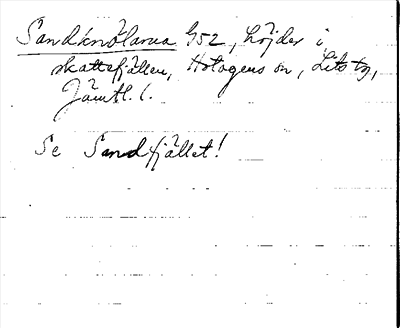 Sandknölarna 952, höjder i
skattefjällen, Hotagens sn, Lits tg,
Jämtl. l.
Se Sandfjället!